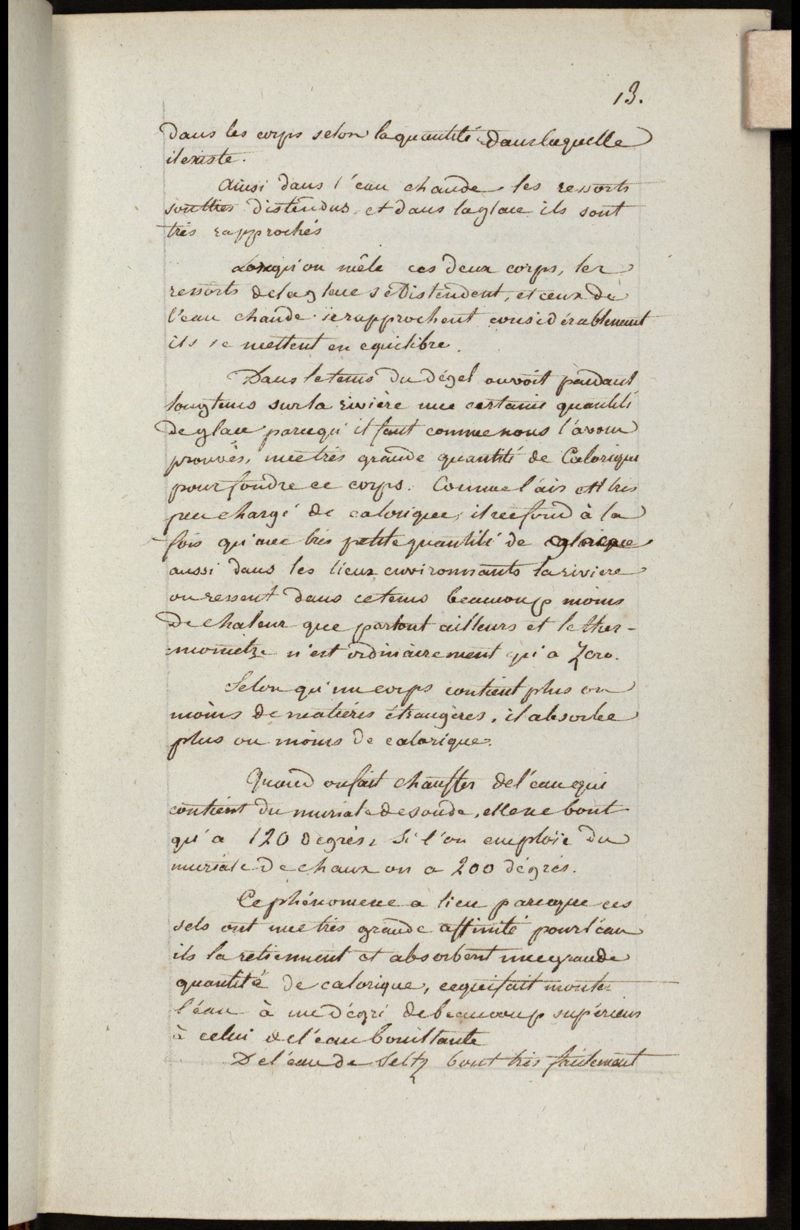 13.
dans les corps selon la quantité dans laquelle
il existe.
Ainsi dans l'eau chaude les ressorts
sont très distendus et dans la glace ils sont
très rapprochés
Lorsqu'on mêle ces deux corps, les
ressorts de la glace se distendent, et ceux de
l'eau chaude se rapprochent considérablement
ils se mettent en equilibre.
Dans le tems du dégel on voit pendant
longtems sur la rivière une certaine quantité
de glace parcequ'il faut comme nous l'avons
prouvés, une très grande quantité de Calorique
pour fondre ce corps. Comme l'air est très
peu chargé de calorique, il ne fond à la
fois qu'une très petite quantité de
aussi dans les lieux environnants la riviere
on ressent dans ce tems beaucoup moins
de chaleur que partout ailleurs et le ther-
mometre n'est ordinairement qu'a Zero.
Selon qu'un corps contient plus ou
moins de matières étrangères, il absorbe
plus ou moins de calorique.
Quand on fait chauffer de l'eau qui
contient du muriate de soude, elle ne bout
qu'a 120 degrés, Si l'on emploïe du
muriate de chaux on a 200 dégrés.
Ce phénomene a lieu parceque ces
sels ont une très grande affinité pour l'eau
ils la retiennent et absorbent une grande
quantité de calorique, ce qui fait monter
l'eau à un dégré de beaucoup supérieur
à celui de l'eau bouillante
De l'eau de Seltz bout très facilement